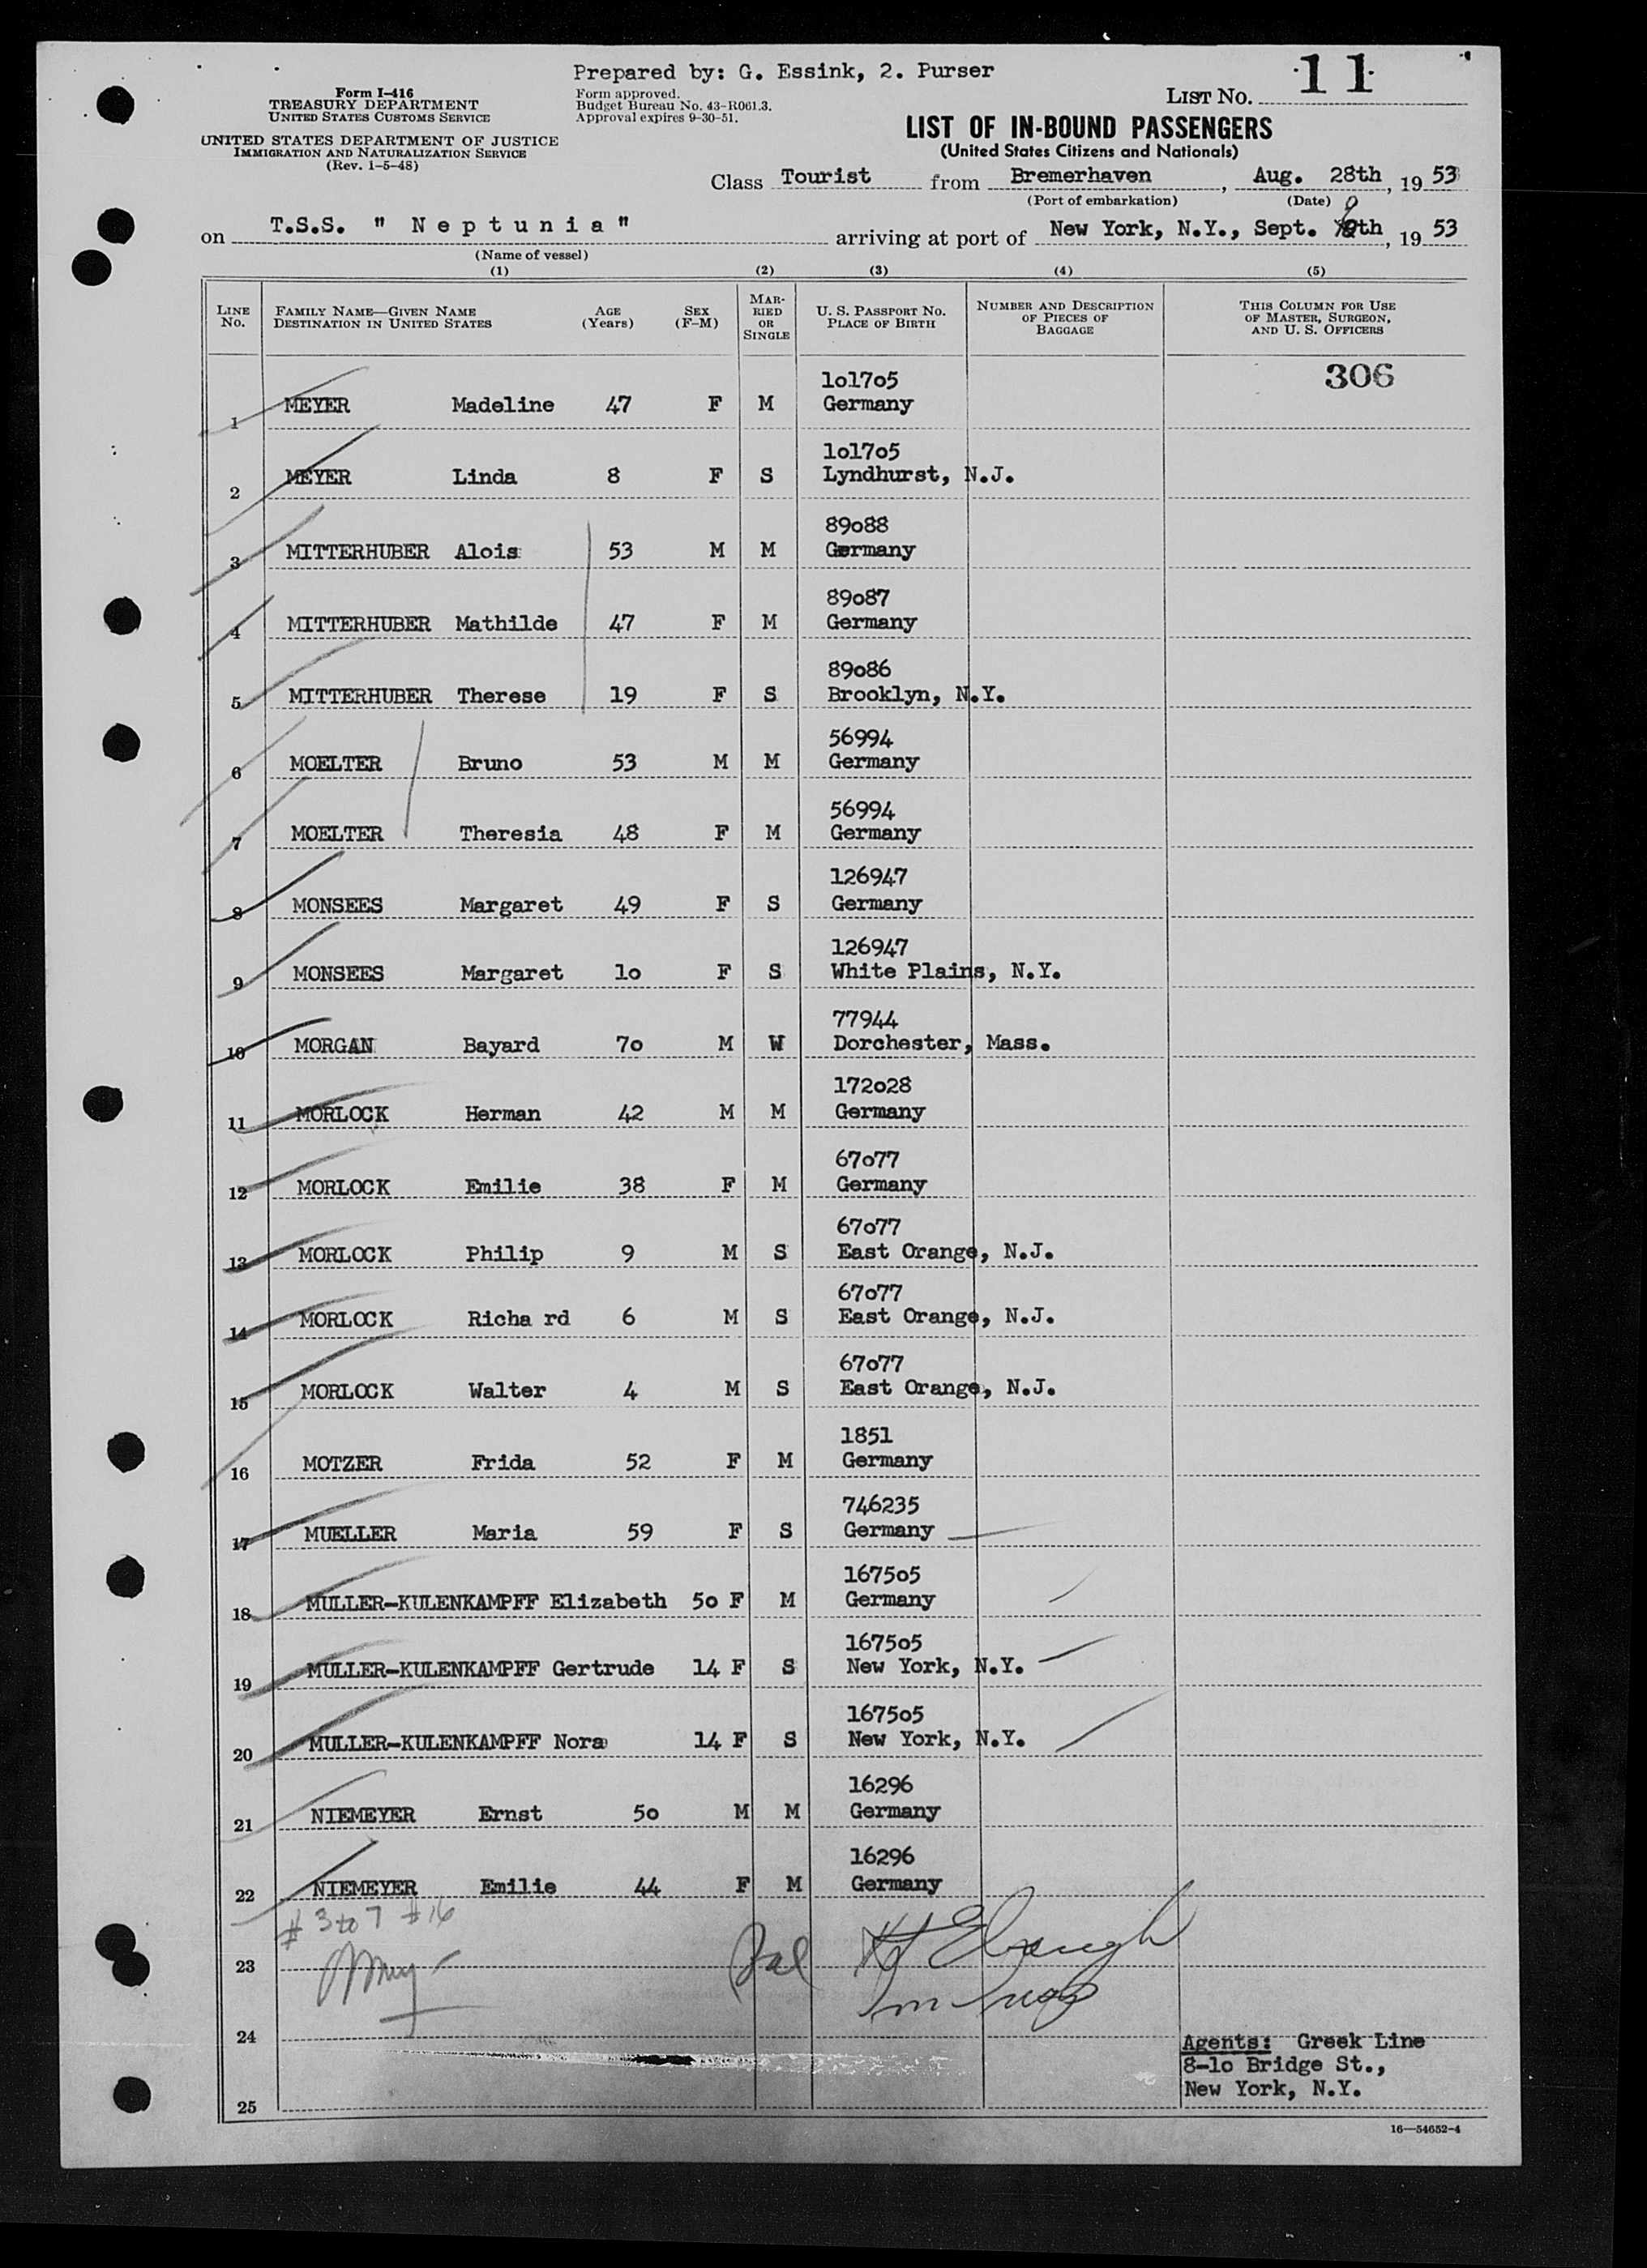 Prepared by: G. Essink, 2. Purser
Form I-416
TREASURY DEPARTMENT
UNITED STATES CUSTOMS SERVICE
UNITED STATES DEPARTMENT OF JUSTICE
IMMIGRATION AND NATURALIZATION SERVICE
(Rev. 1-5-48)
Form approved.
Budget Bureau No. 43-R061.3.
Approval expires 9-30-51.
LIST No. 11
LIST OF IN-BOUND PASSENGERS
(United States Citizens and Nationals)
Class Tourist from Bremerhaven, Aug. 28th, 19 53
(Port of embarkation) (Date)
on T.S.S. " N e p t u n i a " arriving at port of New York, N.Y., Sept. th, 19 53
(Name of vessel)
(1) (2) (3) (4) (5)
LINE No. FAMILY NAME—GIVEN NAME DESTINATION IN UNITED STATES AGE (Years) SEX (F-M) MARRIED OR SINGLE U. S. PASSPORT No. PLACE OF BIRTH NUMBER AND DESCRIPTION OF PIECES OF BAGGAGE THIS COLUMN FOR USE OF MASTER, SURGEON, AND U. S. OFFICERS
306
1o17o5
1 MEYER Madeline 47 F M Germany
1o17o5
2 MEYER Linda 8 F S Lyndhurst, N.J.
89o88
3 MITTERHUBER Alois 53 M M Germany
89o87
4 MITTERHUBER Mathilde 47 F M Germany
89o86
5 MITTERHUBER Therese 19 F S Brooklyn, N.Y.
56994
6 MOELTER Bruno 53 M M Germany
56994
7 MOELTER Theresia 48 F M Germany
126947
8 MONSEES Margaret 49 F S Germany
126947
9 MONSEES Margaret 1o F S White Plains, N.Y.
77944
10 MORGAN Bayard 7o M W Dorchester, Mass.
172o28
11 MORLOCK Herman 42 M M Germany
67o77
12 MORLOCK Emilie 38 F M Germany
67o77
13 MORLOCK Philip 9 M S East Orange, N.J.
67o77
14 MORLOCK Richa rd 6 M S East Orange, N.J.
67o77
15 MORLOCK Walter 4 M S East Orange, N.J.
1851
16 MOTZER Frida 52 F M Germany
746235
17 MUELLER Maria 59 F S Germany
1675o5
18 MULLER-KULENKAMPFF Elizabeth 5o F M Germany
1675o5
19 MULLER-KULENKAMPFF Gertrude 14 F S New York, N.Y.
1675o5
20 MULLER-KULENKAMPFF Nora 14 F S New York, N.Y.
16296
21 NIEMEYER Ernst 5o M M Germany
16296
22 NIEMEYER Emilie 44 F M Germany
# 3 to 7 # 16
23 Bal
24
Agents: Greek Line
8-1o Bridge St.,
New York, N.Y.
25
16—54652-4